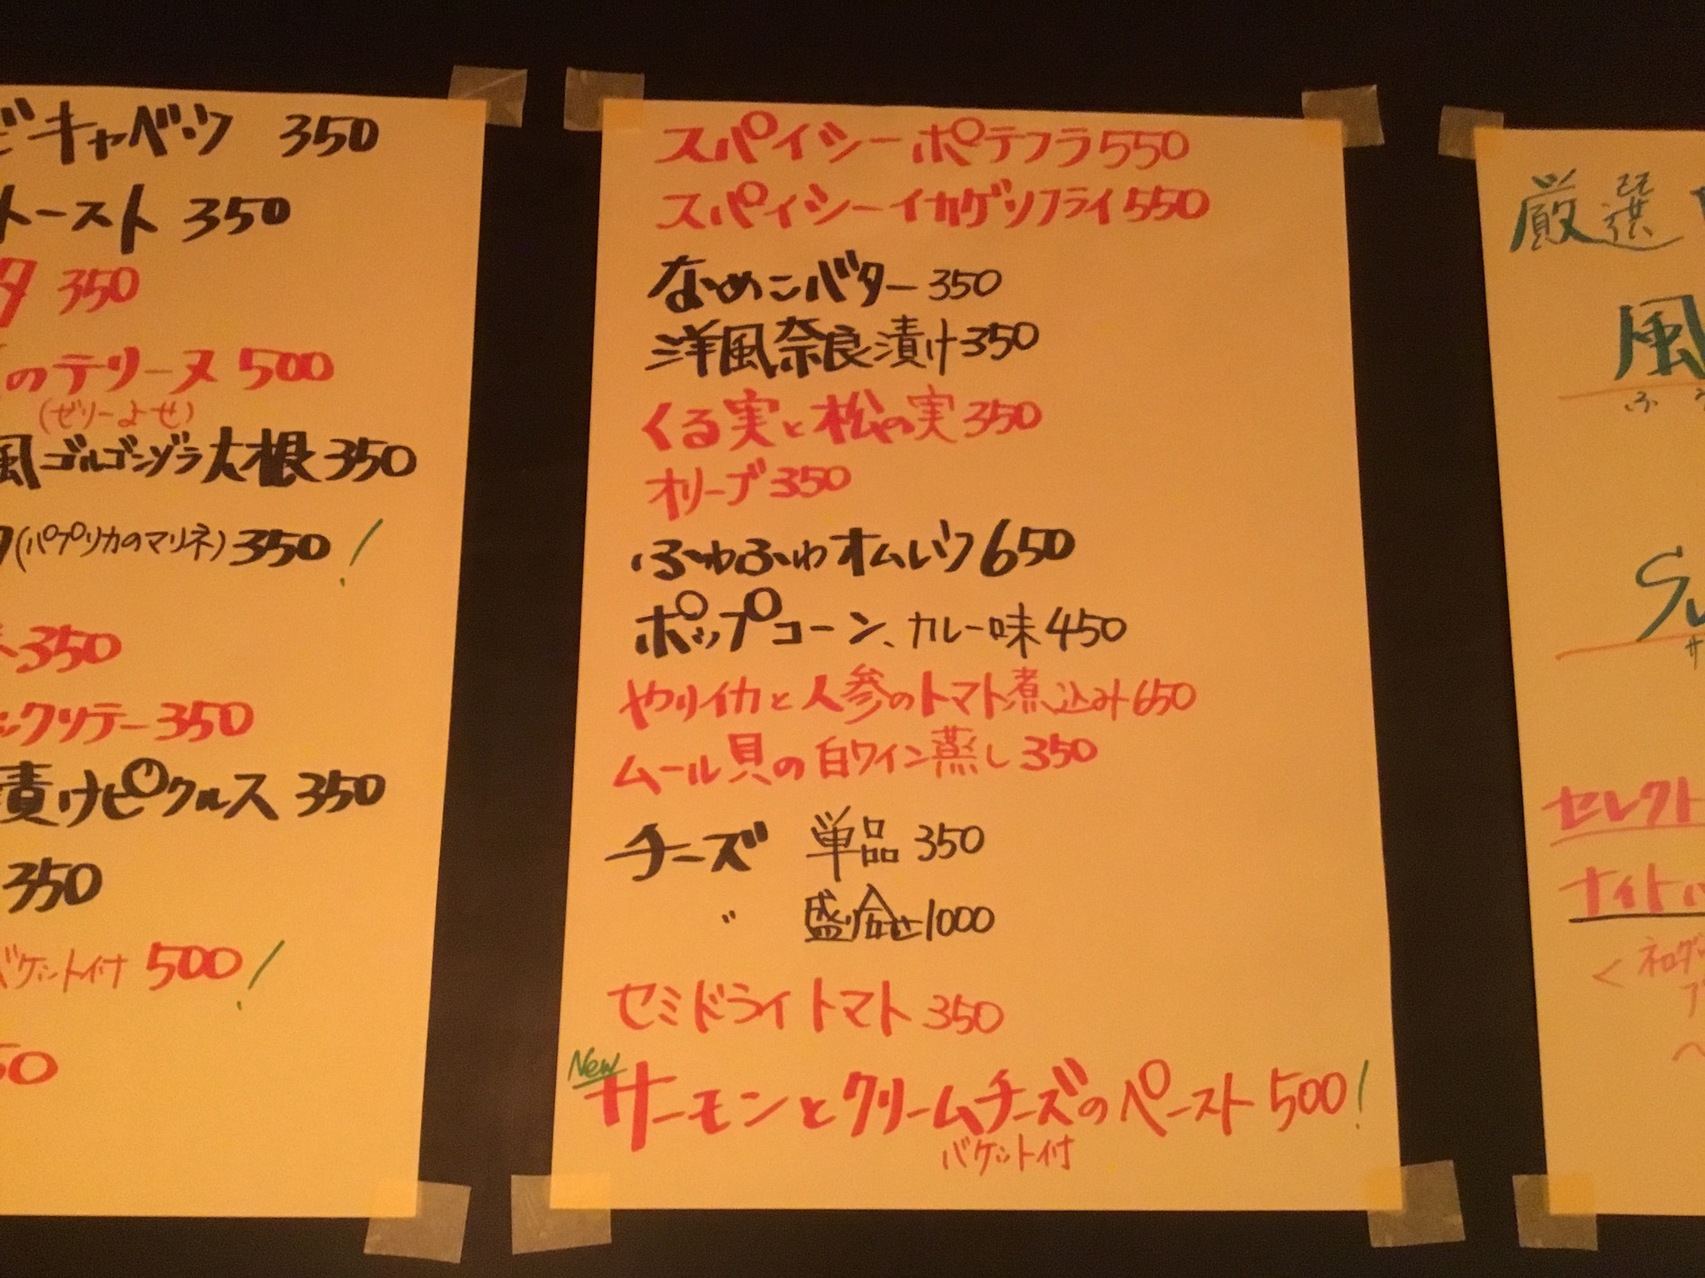 キャベツ 350
トースト 350
タ 350
のテリーヌ 500
(ゼリーよせ)
風ゴルゴンゾラ大根 350
(パプリカのマリネ) 350!
350
クリテー 350
漬けピクルス 350
350
バケット付 500!
50
スパイシーポテフラ 550
スパイシーイカゲソフライ 550
なめこバター 350
洋風奈良漬け 350
くる実と松の実 350
オリーブ 350
ふわふわオムレツ 650
ポップコーン、カレー味 450
やりイカと人参のトマト煮込み 650
ムール貝の白ワイン蒸し 350
チーズ 単品 350
〃 盛り合せ 1000
セミドライトマト 350
New
サーモンとクリームチーズのペースト 500!
バケット付
厳選
風
ふ
セレクト
ナイト